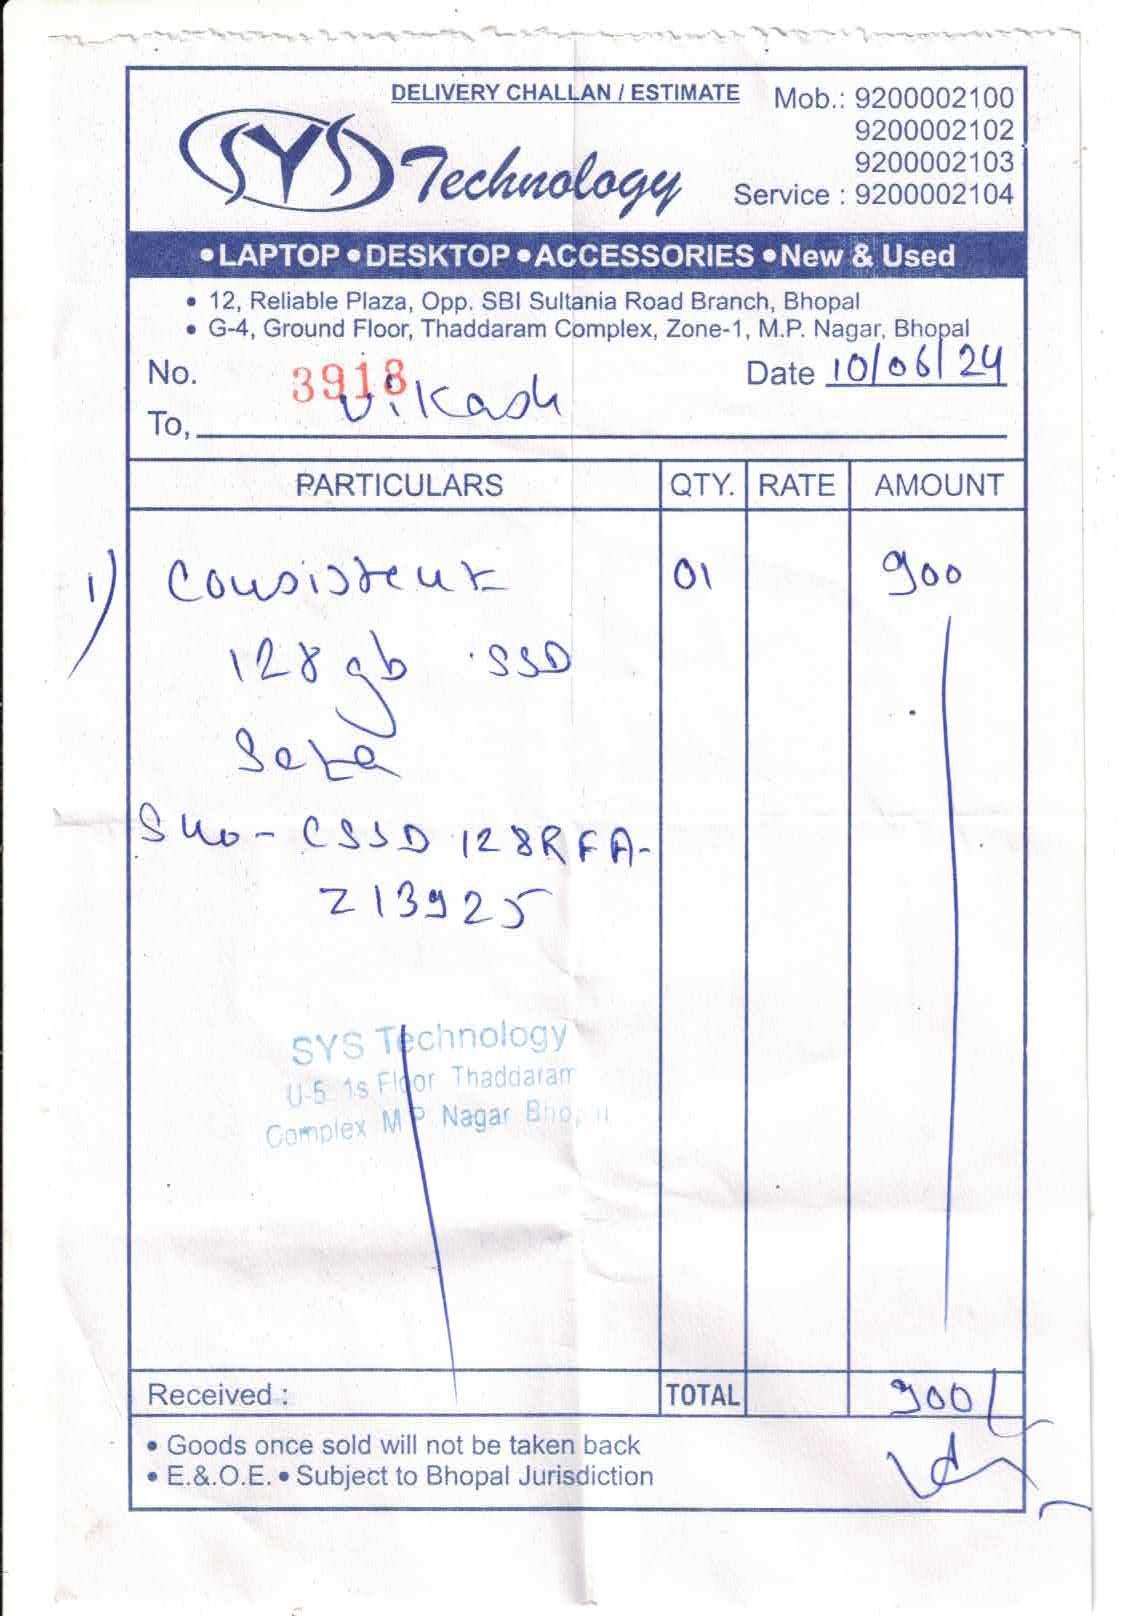 DELIVERY CHALLAN / ESTIMATE
Mob.: 9200002100
9200002102
9200002103
Service : 9200002104
SYS Technology
• LAPTOP • DESKTOP • ACCESSORIES • New & Used
• 12, Reliable Plaza, Opp. SBI Sultania Road Branch, Bhopal
• G-4, Ground Floor, Thaddaram Complex, Zone-1, M.P. Nagar, Bhopal
No. 3918 Date 10/06/24
To, Vikash
PARTICULARS QTY. RATE AMOUNT
1) Consistent 01 900
128 gb SSD
Sata
S no - CSSD 128RFA-
Z13925
SYS Technology
U-5 1s Floor Thaddaram
Complex M P Nagar Bhopal
Received : TOTAL 900/
• Goods once sold will not be taken back
• E.&.O.E. • Subject to Bhopal Jurisdiction